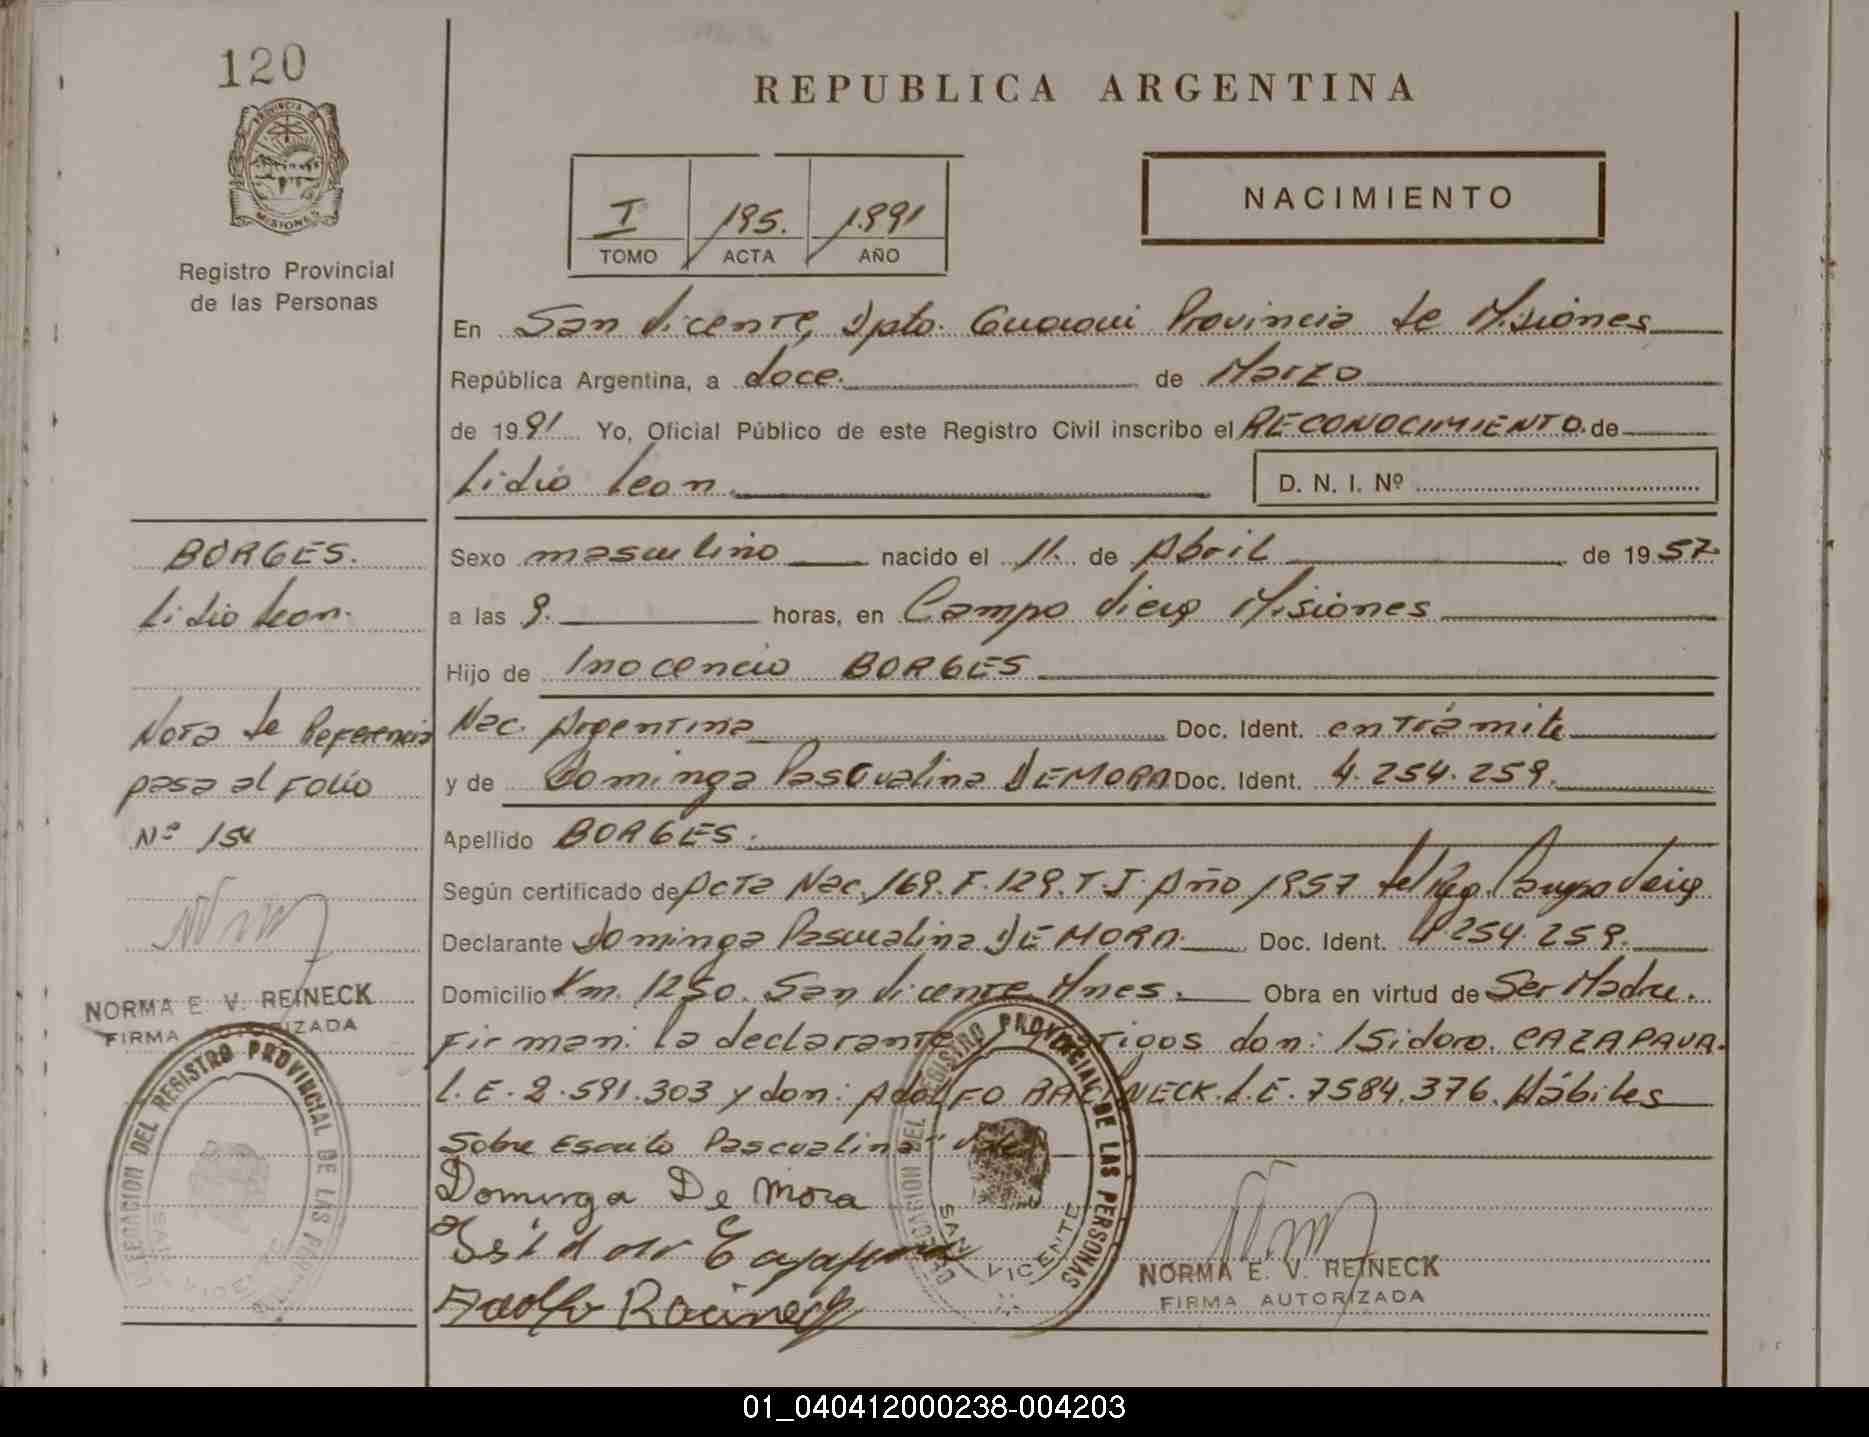 120
REPUBLICA ARGENTINA
PROVINCIA DE
MISIONES
Registro Provincial
de las Personas
I 195. 1.991
TOMO ACTA AÑO
NACIMIENTO
En San Vicente, Dpto. Guarani Provincia de Misiones
República Argentina, a doce. de Marzo
de 1991 Yo, Oficial Público de este Registro Civil inscribo el RECONOCIMIENTO. de
Lidio Leon. D. N. I. Nº
BORGES.
Lidio Leon.
Sexo masculino nacido el 11. de Abril de 1957.
a las 9. horas, en Campo Viera Misiones
Hijo de Inocencio BORGES
Nota de Referencia
pasa al Folio
Nº 154
Nac. Argentina Doc. Ident. en trámite
y de Dominga Pascualina DEMORA Doc. Ident. 4.254.259.
Apellido BORGES.
Según certificado de Acta Nac. 169. F. 129. T. I. Año 1957 del Reg. Campo Viera
Declarante Dominga Pascualina DE MORA. Doc. Ident. 4.254.259.
Domicilio Km. 1250. San Vicente Mnes. Obra en virtud de Ser Madre.
Firman: la declarante y testigos don: Isidoro. CAZAPAVA.
L.E. 2.591.303 y don: Adolfo RACINECK. L.E. 7584.376. Hábiles
Sobre Escrito Pascualina" Vale
Dominga De Mora
Adolfo Racineck
NORMA E. V. REINECK
FIRMA AUTORIZADA
DELEGACION DEL REGISTRO PROVINCIAL DE LAS PERSONAS
SAN VICENTE
DELEGACION DEL REGISTRO PROVINCIAL DE LAS PERSONAS
SAN VICENTE
NORMA E. V. REINECK
FIRMA AUTORIZADA
01_040412000238-004203